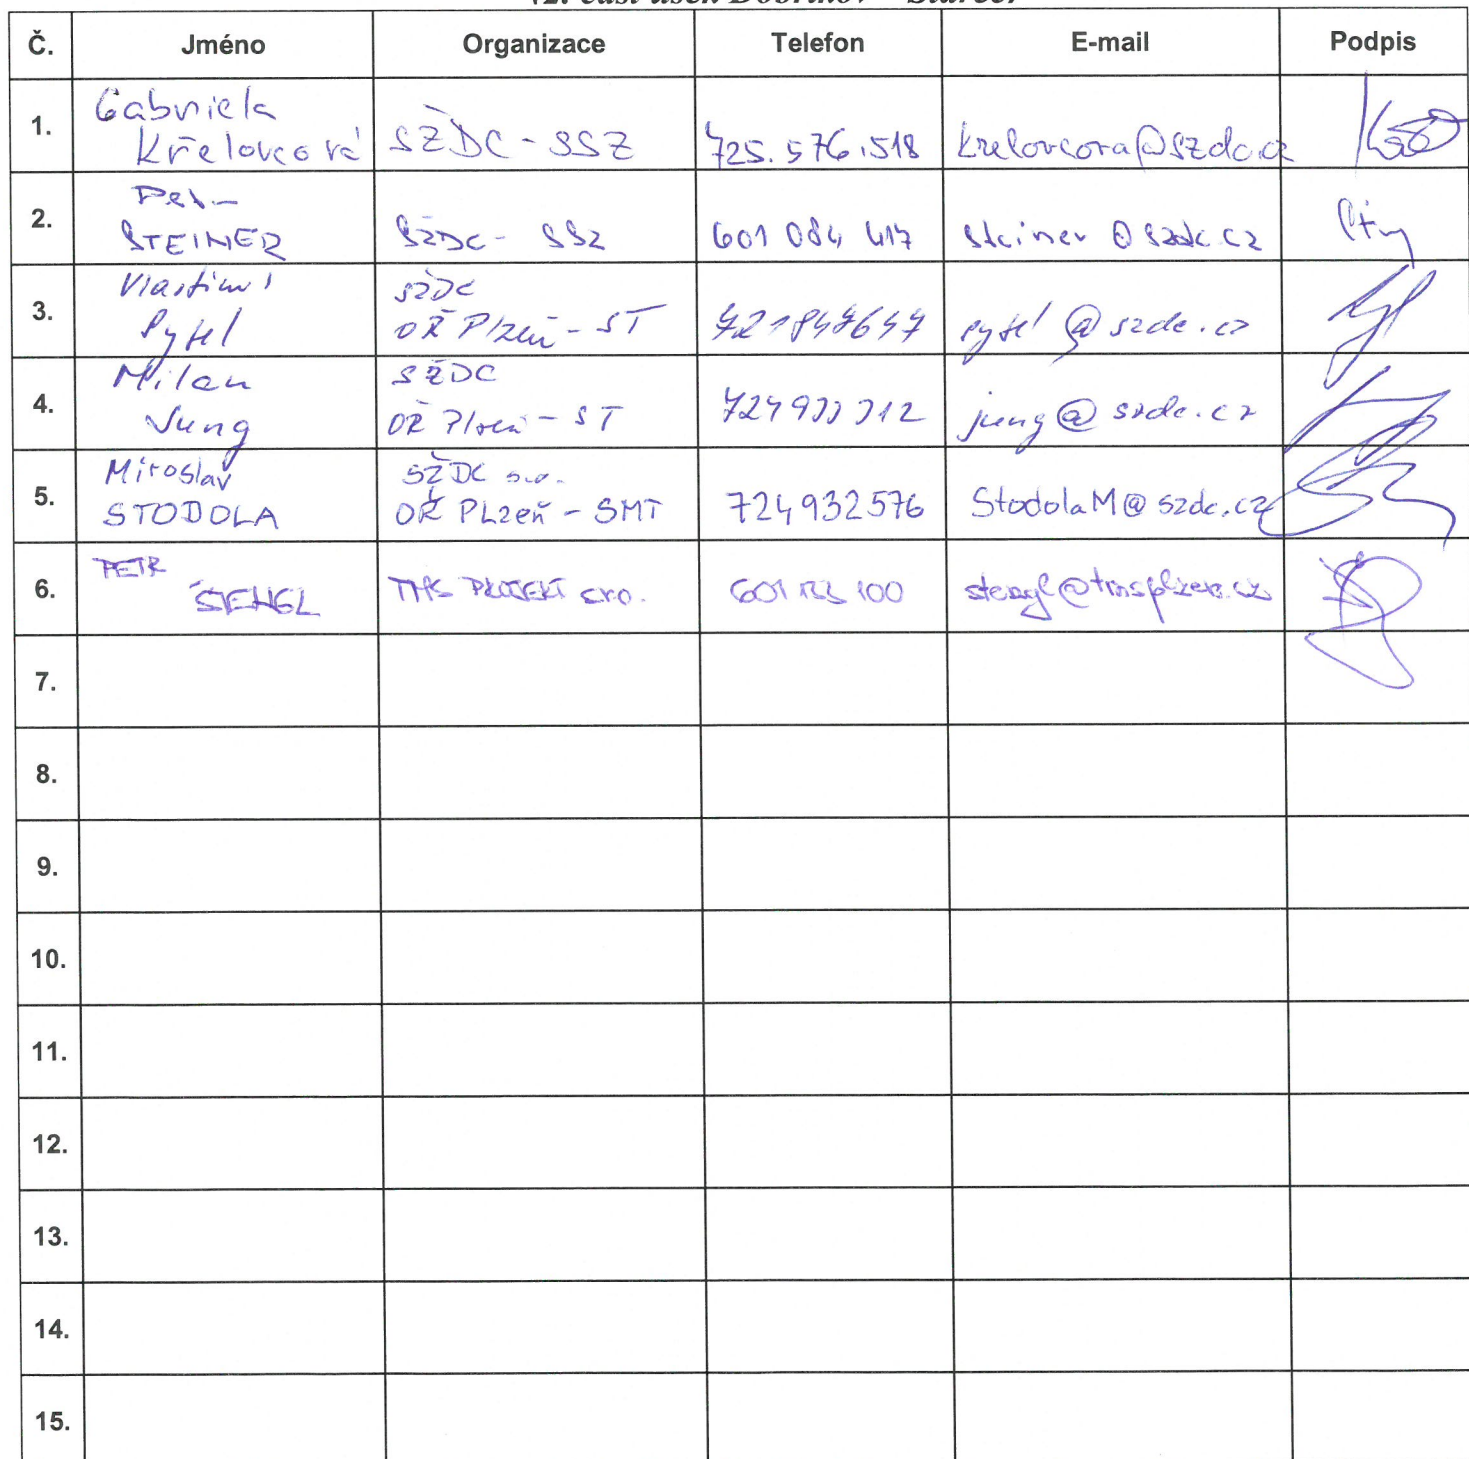 Č. Jméno Organizace Telefon E-mail Podpis
1. Gabriela Křelovcová SŽDC - SSZ 725.576.518 krelovcova@szdc.cz
2. Petr STEINER SŽDC - SSZ 601 084 417 steiner@szdc.cz
3. Vlastimil Pytel SŽDC OŘ Plzeň - ST 721847647 pytel@szdc.cz
4. Milan Jung SŽDC OŘ Plzeň - ST jung@szdc.cz
5. Miroslav STODOLA SŽDC s.o. OŘ PLzeň - SMT 724932576 StodolaM@szdc.cz
6. PETR ŠTENGL TMS PROJEKT s.r.o. 100 stengl@tmsplzen.cz
7.
8.
9.
10.
11.
12.
13.
14.
15.